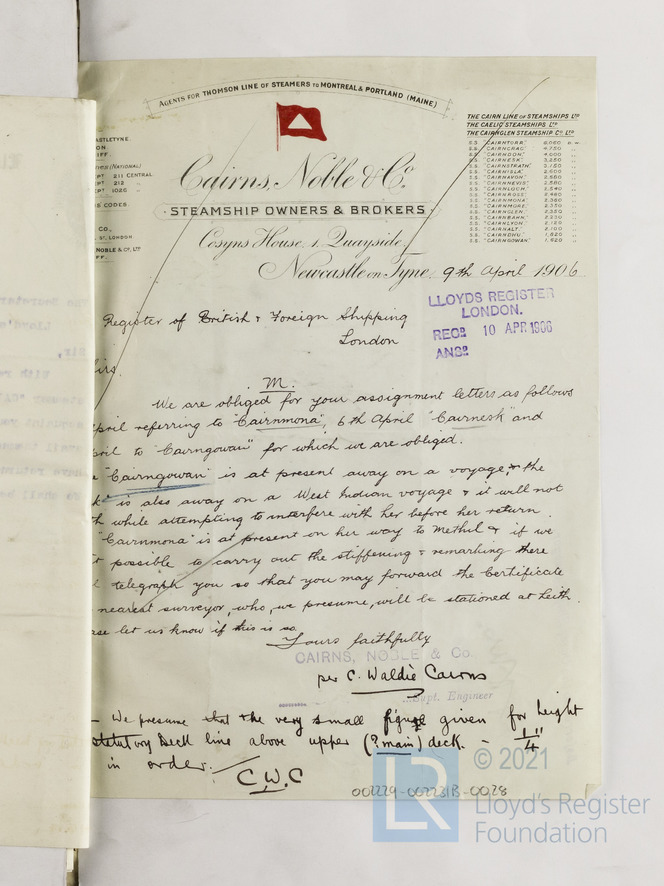 AGENTS FOR THOMSON LINE OF STEAMERS TO MONTREAL & PORTLAND (MAINE)
THE CAIRN LINE OF STEAMSHIPS LTD
THE CAELIC STEAMSHIPS LTD
THE CAIRNGLEN STEAMSHIP CO. LTD
S.S. "CAIRNTORR"
S.S. "CAIRNCRAG"
S.S. "CAIRNDON" 4,000
S.S. "CAIRNESK" 3,250
S.S. "CAIRNSTRATH"
S.S. "CAIRNISLA" 2,600
S.S. "CAIRNAVON"
S.S. "CAIRNNEVIS"
S.S. "CAIRNLOCH"
S.S. "CAIRNROSS"
S.S. "CAIRNMONA"
S.S. "CAIRNMORE"
S.S. "CAIRNGLEN"
S.S. "CAIRNBAHN"
S.S. "CAIRNLYON"
S.S. "CAIRNALT" 2,100
S.S. "CAIRNDHU"
S.S. "CAIRNGOWAN"
ASTLETYNE.
(NATIONAL)
211 CENTRAL
212 "
1026 "
CODES.
CO.,
ST. LONDON.
NOBLE & CO, LTD
Cairns, Noble & Co.
STEAMSHIP OWNERS & BROKERS
Cosyns House, 1, Quayside,
Newcastle on Tyne, 9th April 1906
LLOYDS REGISTER
LONDON.
RECD 10 APR 1906
ANSD
Register of British & Foreign Shipping
London
irs.
M.
We are obliged for your assignment letters as follows
April referring to "Cairnmona", 6th April "Cairnesk" and
pril to "Cairngowan" for which we are obliged.
"Cairngowan" is at present away on a voyage, & the
k" is also away on a West Indian voyage & it will not
h while attempting to interfere with her before her return.
"Cairnmona" is at present on her way to Methil & if we
possible to carry out the stiffening & remarking there
l telegraph you so that you may forward the Certificate
nearest surveyor, who, we presume, will be stationed at Leith.
ase let us know if this is so.
Yours faithfully
CAIRNS, NOBLE & Co.
per C. Waldie Cairns
Supt. Engineer
- We presume that the very small figure given for height
statutory Deck line above upper (? main) deck. - 1/4"
in order. - C.W.C
002229-002231B-0028
© 2021
LR
Lloyd's Register
Foundation